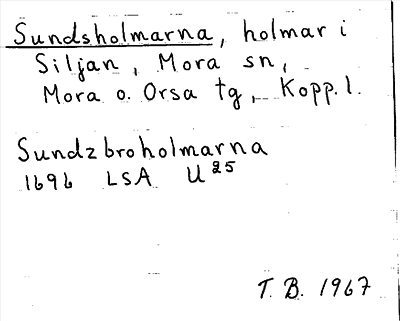 Sundsholmarna, holmar i
Siljan, Mora sn,
Mora o. Orsa tg, Kopp. l.
Sundzbroholmarna
1696 LSA U25
T. B. 1967